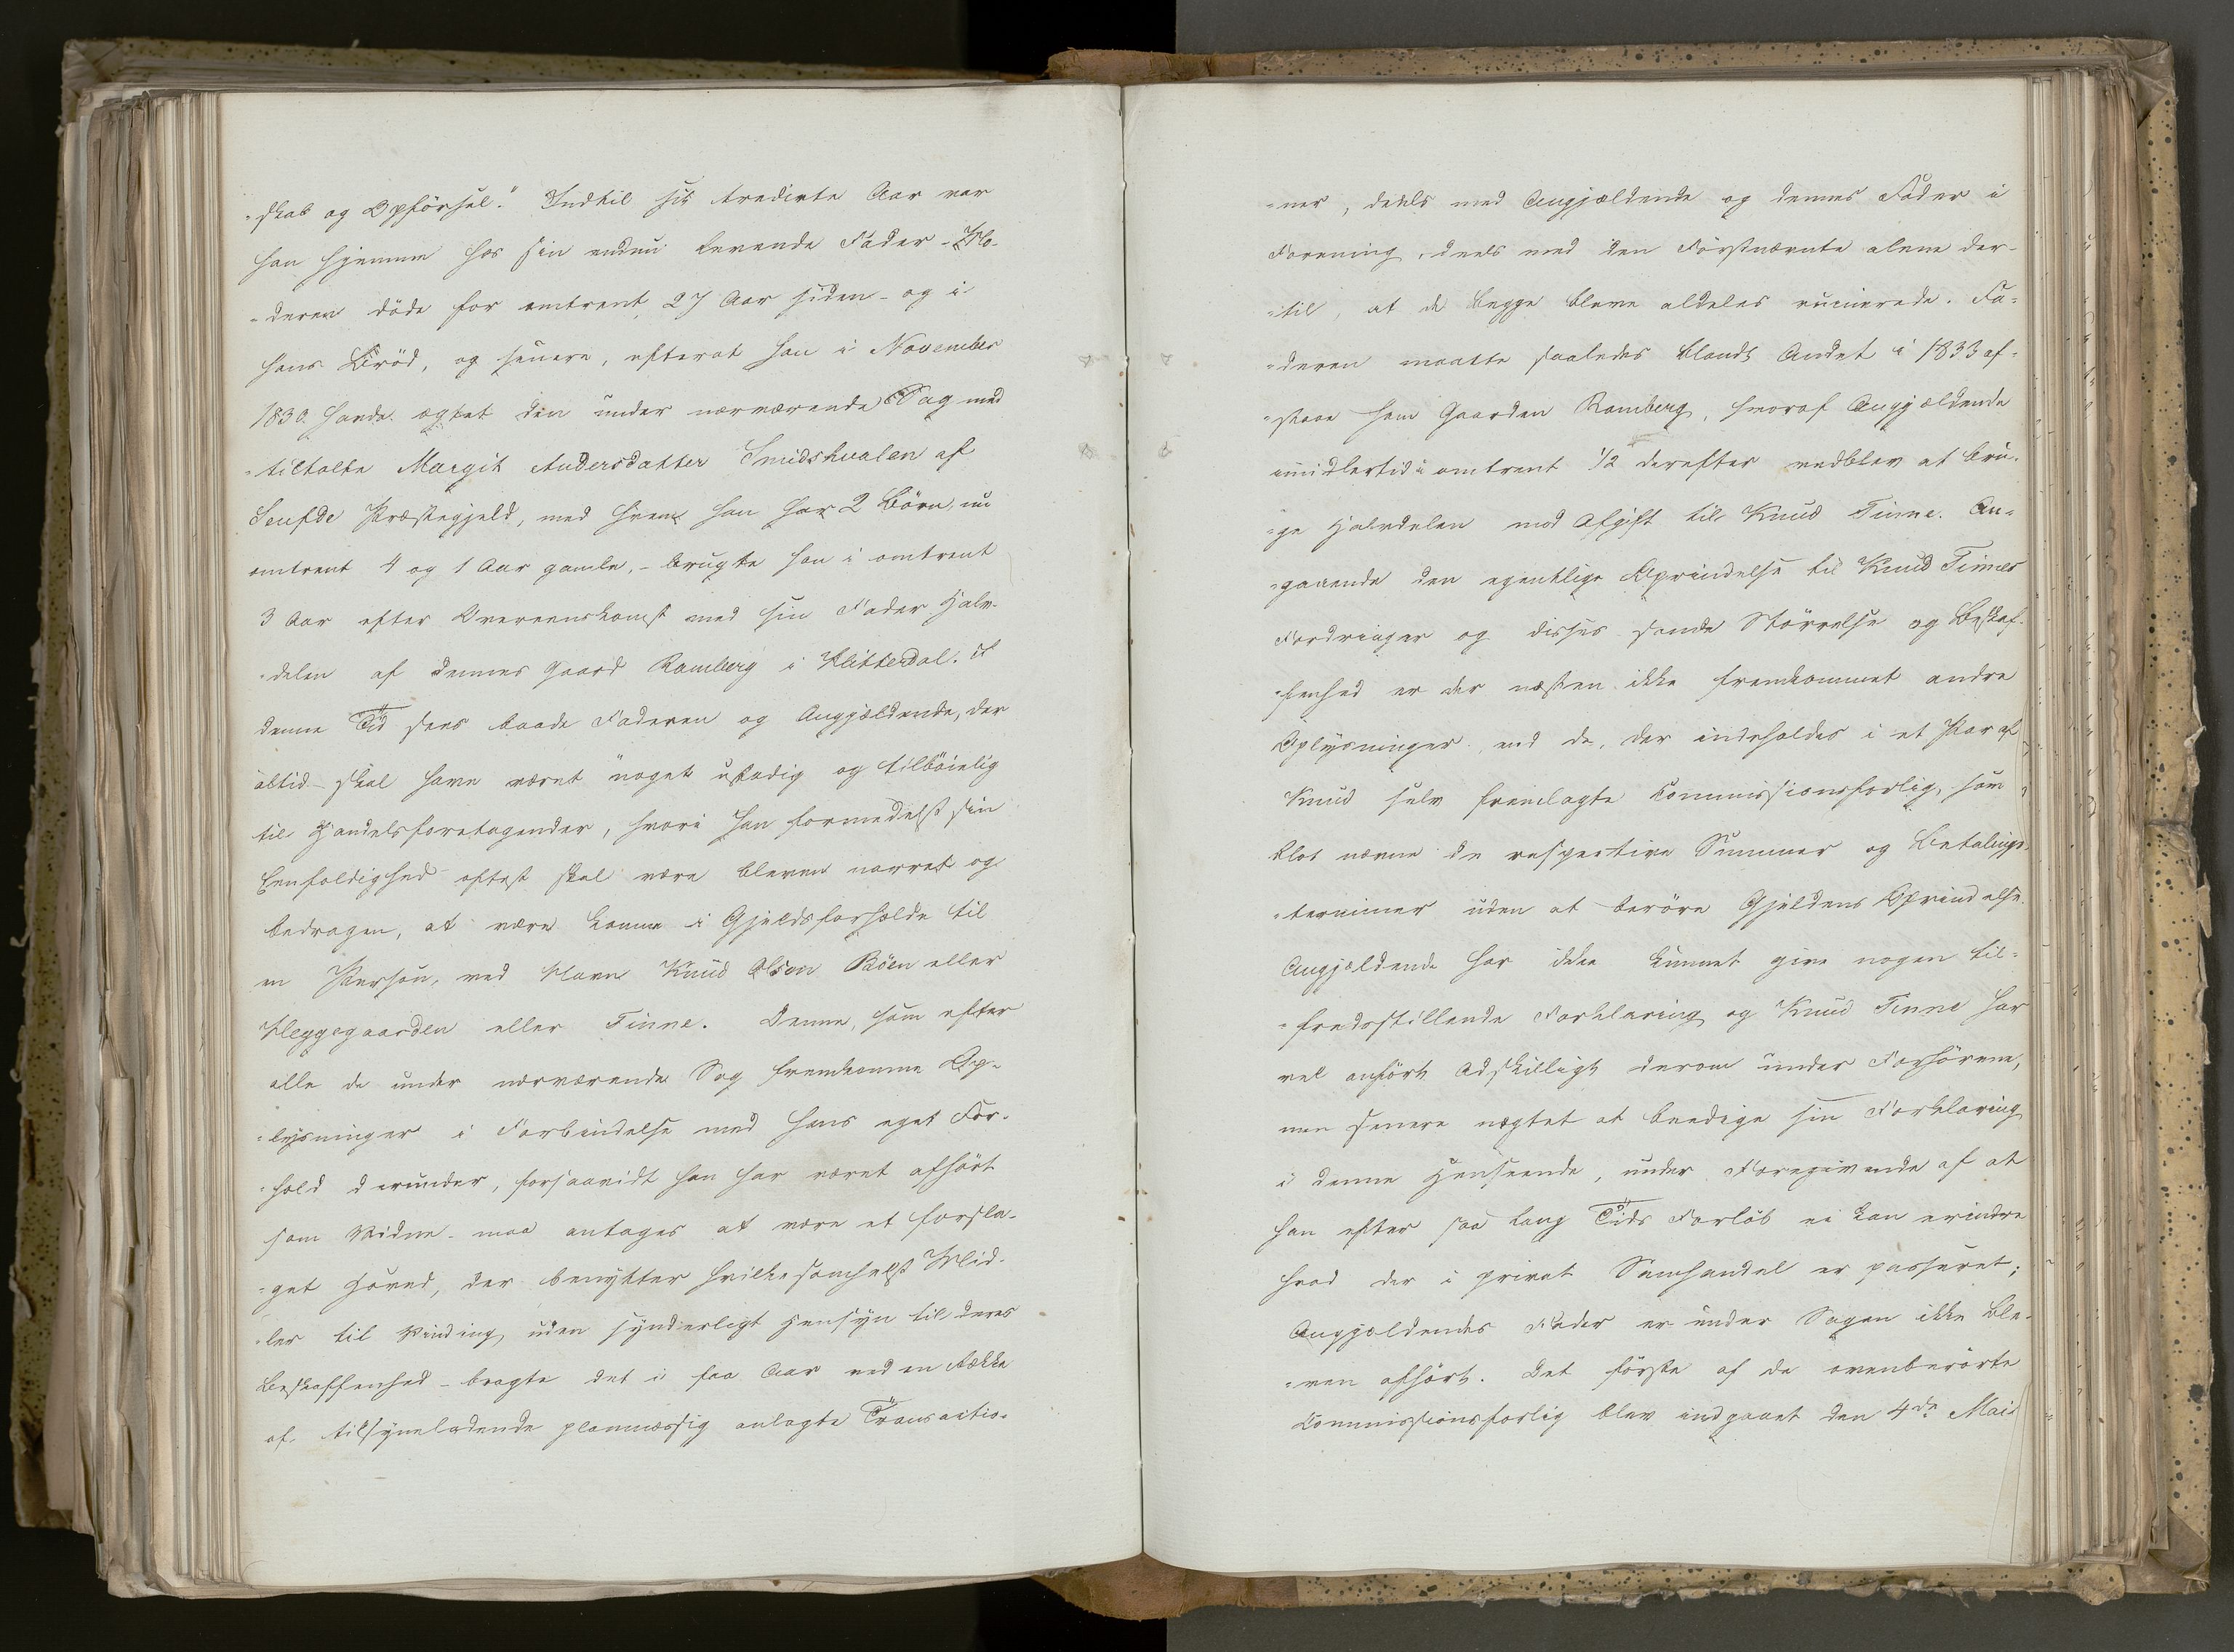 "skab og Opførsel." Indtil sit tredivte Aar var
han hjemme hos sin endnu levende Fader - Mo-
"deren døde for omtrent 27 Aar siden - og i
hans Brød, og senere, efterat han i November
1830 havde ægtet den under nærværende Sag med
"tiltalte Margit Andersdatter Smidshvalen af
Seufde Præstegjeld, med hvem han har 2 Børn, nu
omtrent 4 og 1 Aar gamle, - brugte han i omtrent
3 Aar efter Overeenskomst med sin Fader Halv-
"delen af dennes Gaard Ramberg i Hitterdal. I
denne Tid skal baade Faderen og Angjældende, der
altid skal have været noget ustadig og tilbøielig
til Handelsforetagender, hvori han formedelst sin
Eenfoldighed oftest skal være bleven narret og
bedragen, at være komne i Gjeldsforholde til
en Person, ved Navn Knud Olsen Bøen eller
Heggegaarden eller Tinne. Denne, som efter
alle de under nærværende Sag fremkomne Op-
"lysninger i Forbindelse med hans eget For-
"hold derunder, forsaavidt han har været afhørt
som Vidne - maa antages at være et forsla-
"get Hoved, der benytter hvilkesomhelst Mid-
"ler til Vinding, uden synderligt Hensyn til deres
Beskaffenhed - bragte det i faa Aar ved en Række
af tilsyneladende planmæssig anlagte Transactio-
"ner, deels med Angjældende og dennes Fader i
Forening, deels med den Førstnævnte alene der-
"til, at de begge bleve aldeles ruinerede. Fa-
"deren maatte saaledes blandt Andet i 1833 af-
"staae ham Gaarden Ramberg, hvoraf Angjældende
imidlertid i omtrent 1/2 derefter vedblev at bru-
"ge Halvdelen mod Afgift til Knud Tinne. An-
"gaaende den egentlige Oprindelse til Knud Tinnes
Fordringer og disses sande Størrelse og Beskaf-
"fenhed er der næsten ikke fremkommet andre
Oplysninger, end de, der indeholdes i et Par af
Knud selv fremlagte Commissionsforlig, som
blot nævne de respective Summer og Betalings-
"terminer uden at berøre Gjeldens Oprindelse.
Angjældende har ikke kunnet give nogen til-
"fredsstillende Forklaring og Knud Tinne har
vel anført Adskilligt derom under Forhørene,
men senere nægtet at beedige sin Forklaring
i denne Henseende, under Foregivende af at
han efter saa lang Tids Forløb ei kan erindre
hvad der i privat Samhandel er passeret;
Angjældendes Fader er under Sagen ikke ble-
"ven afhørt. Det første af de ovenberørte
Commissionsforlig blev indgaaet den 4de Mai